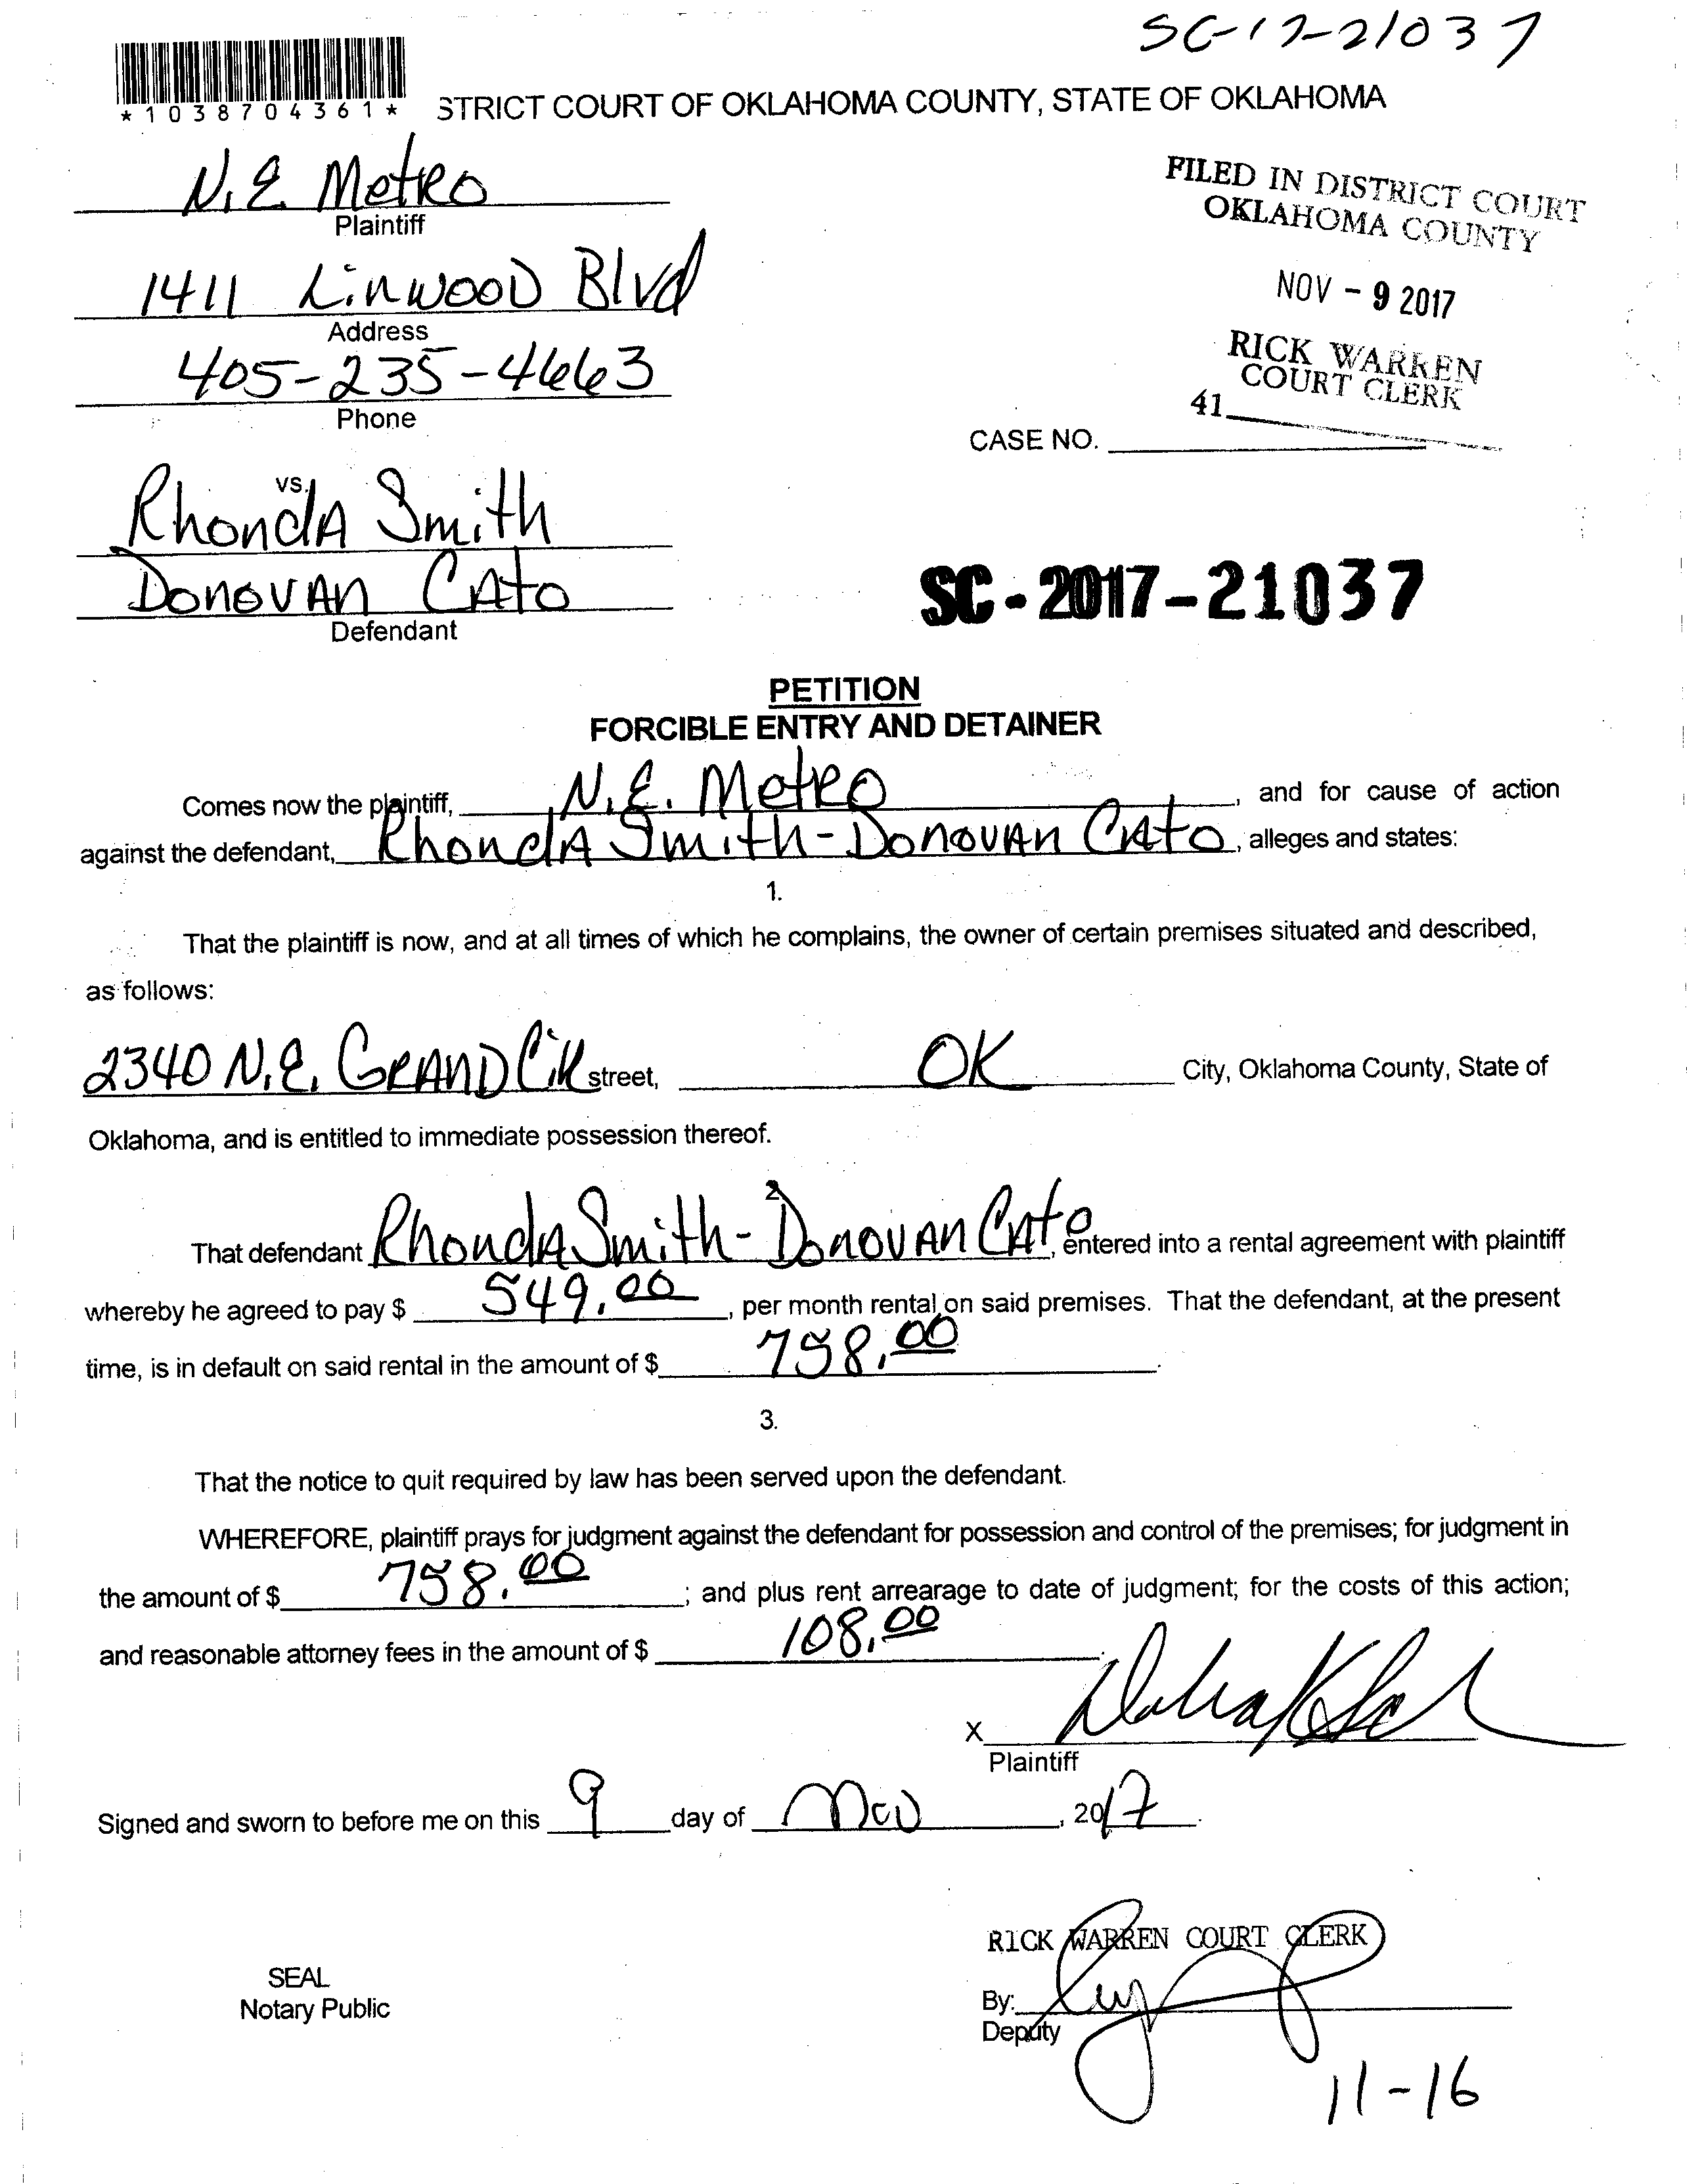 SC-17-21037
*1038704361*
STRICT COURT OF OKLAHOMA COUNTY, STATE OF OKLAHOMA
N.E. Metro
Plaintiff
FILED IN DISTRICT COURT
OKLAHOMA COUNTY
1411 Linwood Blvd
Address
NOV - 9 2017
405-235-4663
Phone
RICK WARREN
COURT CLERK
41
CASE NO.
vs.
Rhonda Smith
Donovan Cato
Defendant
SC - 2017-21037
PETITION
FORCIBLE ENTRY AND DETAINER
Comes now the plaintiff, N.E. Metro, and for cause of action
against the defendant, Rhonda Smith - Donovan Cato, alleges and states:
1.
That the plaintiff is now, and at all times of which he complains, the owner of certain premises situated and described,
as follows:
2340 N.E. Grand Cir street, OK City, Oklahoma County, State of
Oklahoma, and is entitled to immediate possession thereof.
2
That defendant Rhonda Smith - Donovan Cato, entered into a rental agreement with plaintiff
whereby he agreed to pay $ 549.00, per month rental on said premises. That the defendant, at the present
time, is in default on said rental in the amount of $ 758.00.
3.
That the notice to quit required by law has been served upon the defendant.
WHEREFORE, plaintiff prays for judgment against the defendant for possession and control of the premises; for judgment in
the amount of $ 758.00; and plus rent arrearage to date of judgment; for the costs of this action;
and reasonable attorney fees in the amount of $ 108.00.
X
Plaintiff
Signed and sworn to before me on this 9 day of Nov, 2017.
RICK WARREN COURT CLERK
SEAL
Notary Public
By:
Deputy
11-16